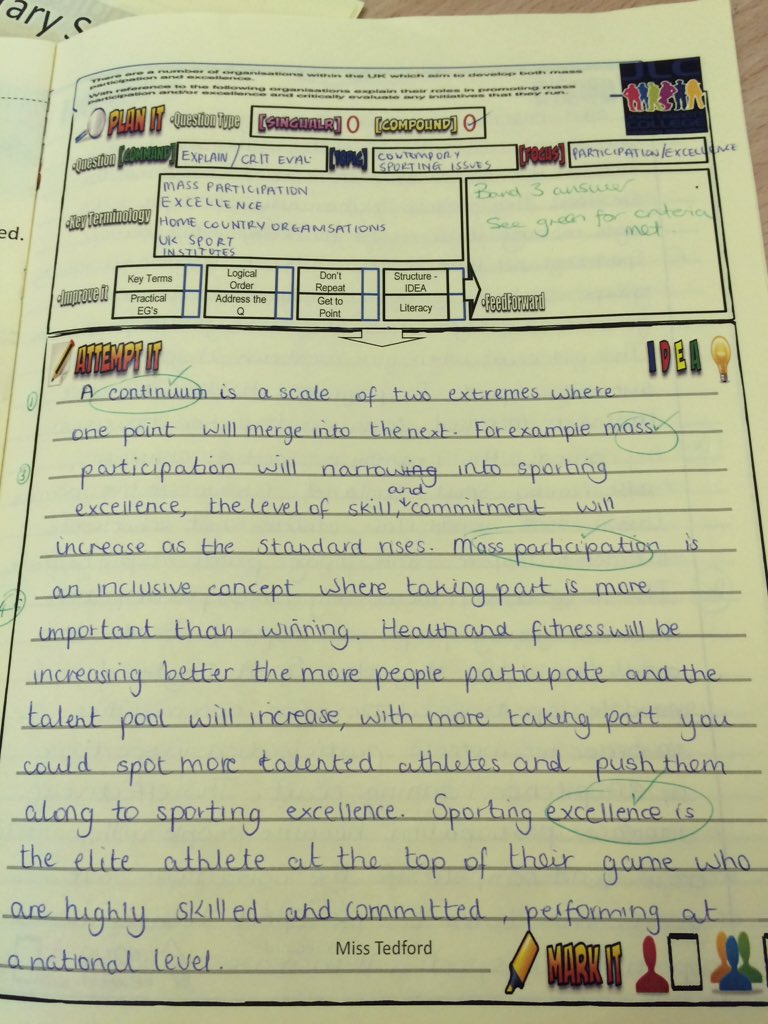 ary S
ed.
There are a number of organisations within the UK which aim to develop both mass
participation and excellence.
With reference to the following organisations explain their roles in promoting mass
participation and/or excellence and critically evaluate any initiatives that they run.
PLAN IT •Question Type [SINGULAR] O [COMPOUND] O
•Question [COMMAND] EXPLAIN/CRIT EVAL [TOPIC] CONTEMPORY SPORTING ISSUES [FOCUS] PARTICIPATION/EXCELLENCE
•Key Terminology
MASS PARTICIPATION
EXCELLENCE
HOME COUNTRY ORGANISATIONS
UK SPORT
INSTITUTES
Band 3 answer
See green for criteria
met.
•Improve it
Key Terms
Logical Order
Don't Repeat
Structure - IDEA
Practical EG's
Address the Q
Get to Point
Literacy
•FeedForward
ATTEMPT IT
IDEA
A continuum is a scale of two extremes where
one point will merge into the next. For example mass
participation will narrowing into sporting
excellence, the level of skill, and commitment will
increase as the standard rises. Mass participation is
an inclusive concept where taking part is more
important than winning. Health and fitness will be
increasing better the more people participate and the
talent pool will increase, with more taking part you
could spot more talented athletes and push them
along to sporting excellence. Sporting excellence is
the elite athlete at the top of their game who
are highly skilled and committed, performing at
a national level.
Miss Tedford
MARK IT